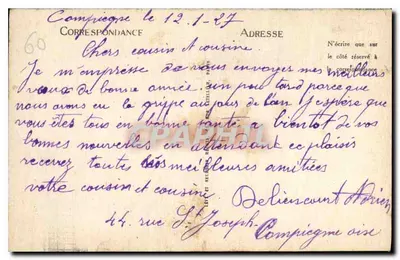 Compiegne le 12-1-27
60
CORRESPONDANCE ADRESSE
N'écrire que sur
le côté réservé à
la correspondance
Chers cousin et cousine
Je m'empresse de vous envoyer mes meilleurs
vœux de bonne année un peu tard parce que
nous avons eu la grippe au jour de l'an J'espère que
vous êtes tous en bonne santé a bientot de vos
bonnes nouvelles en attendant ce plaisir
recevez toutes nos meilleures amitiées
votre cousin et cousine
Deliencourt Adrien
44 rue St Joseph
Compiegne oise